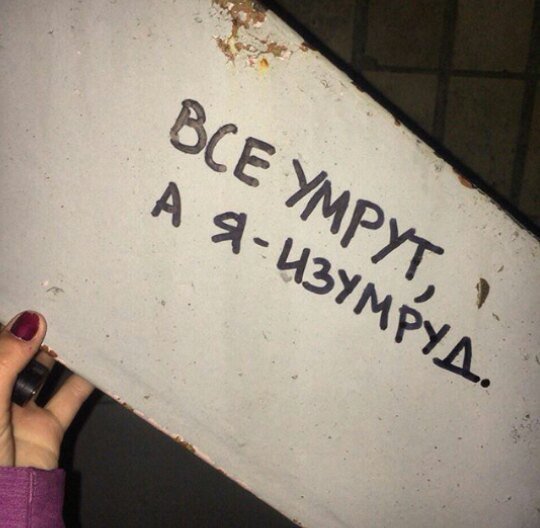 ВСЕ УМРУТ,
А Я - ИЗУМРУД.